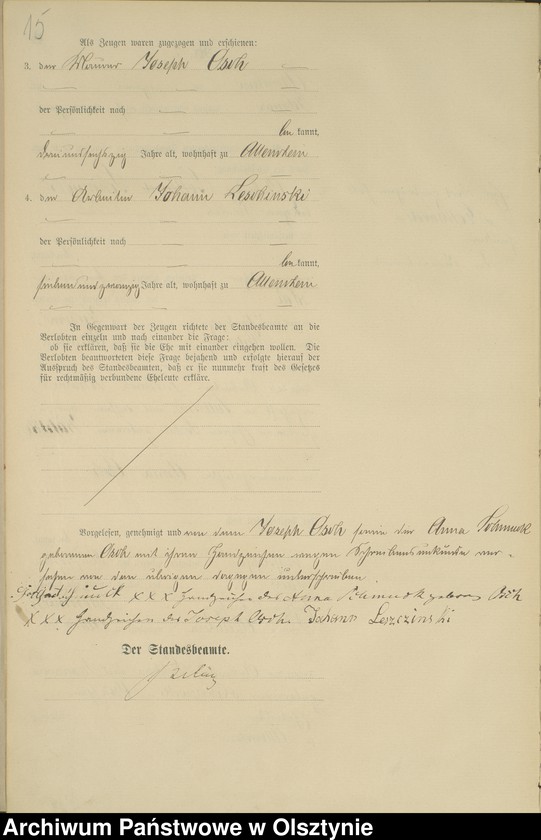 15
Als Zeugen waren zugezogen und erschienen:
3. der Maurer Joseph Osch
der Persönlichkeit nach
be kannt,
dreiundsechszig Jahre alt, wohnhaft zu Allenstein
4. der Arbeiter Johann Leschinski
der Persönlichkeit nach
be kannt,
sieben und zwanzig Jahre alt, wohnhaft zu Allenstein
In Gegenwart der Zeugen richtete der Standesbeamte an die
Verlobten einzeln und nach einander die Frage:
ob sie erklären, daß sie die Ehe mit einander eingehen wollen. Die
Verlobten beantworteten diese Frage bejahend und erfolgte hierauf der
Ausspruch des Standesbeamten, daß er sie nunmehr kraft des Gesetzes
für rechtmäßig verbundene Eheleute erkläre.
Vorgelesen, genehmigt und von dem Joseph Osch sowie der Anna
geborenen Osch mit ihren Handzeichen wegen Schreibensunkunde ver-
sehen von den übrigen dagegen unterschrieben.
XXX Handzeichen der Anna geborene Osch
XXX Handzeichen des Joseph Osch. Johann Leszczinski
Der Standesbeamte.
Archiwum Państwowe w Olsztynie